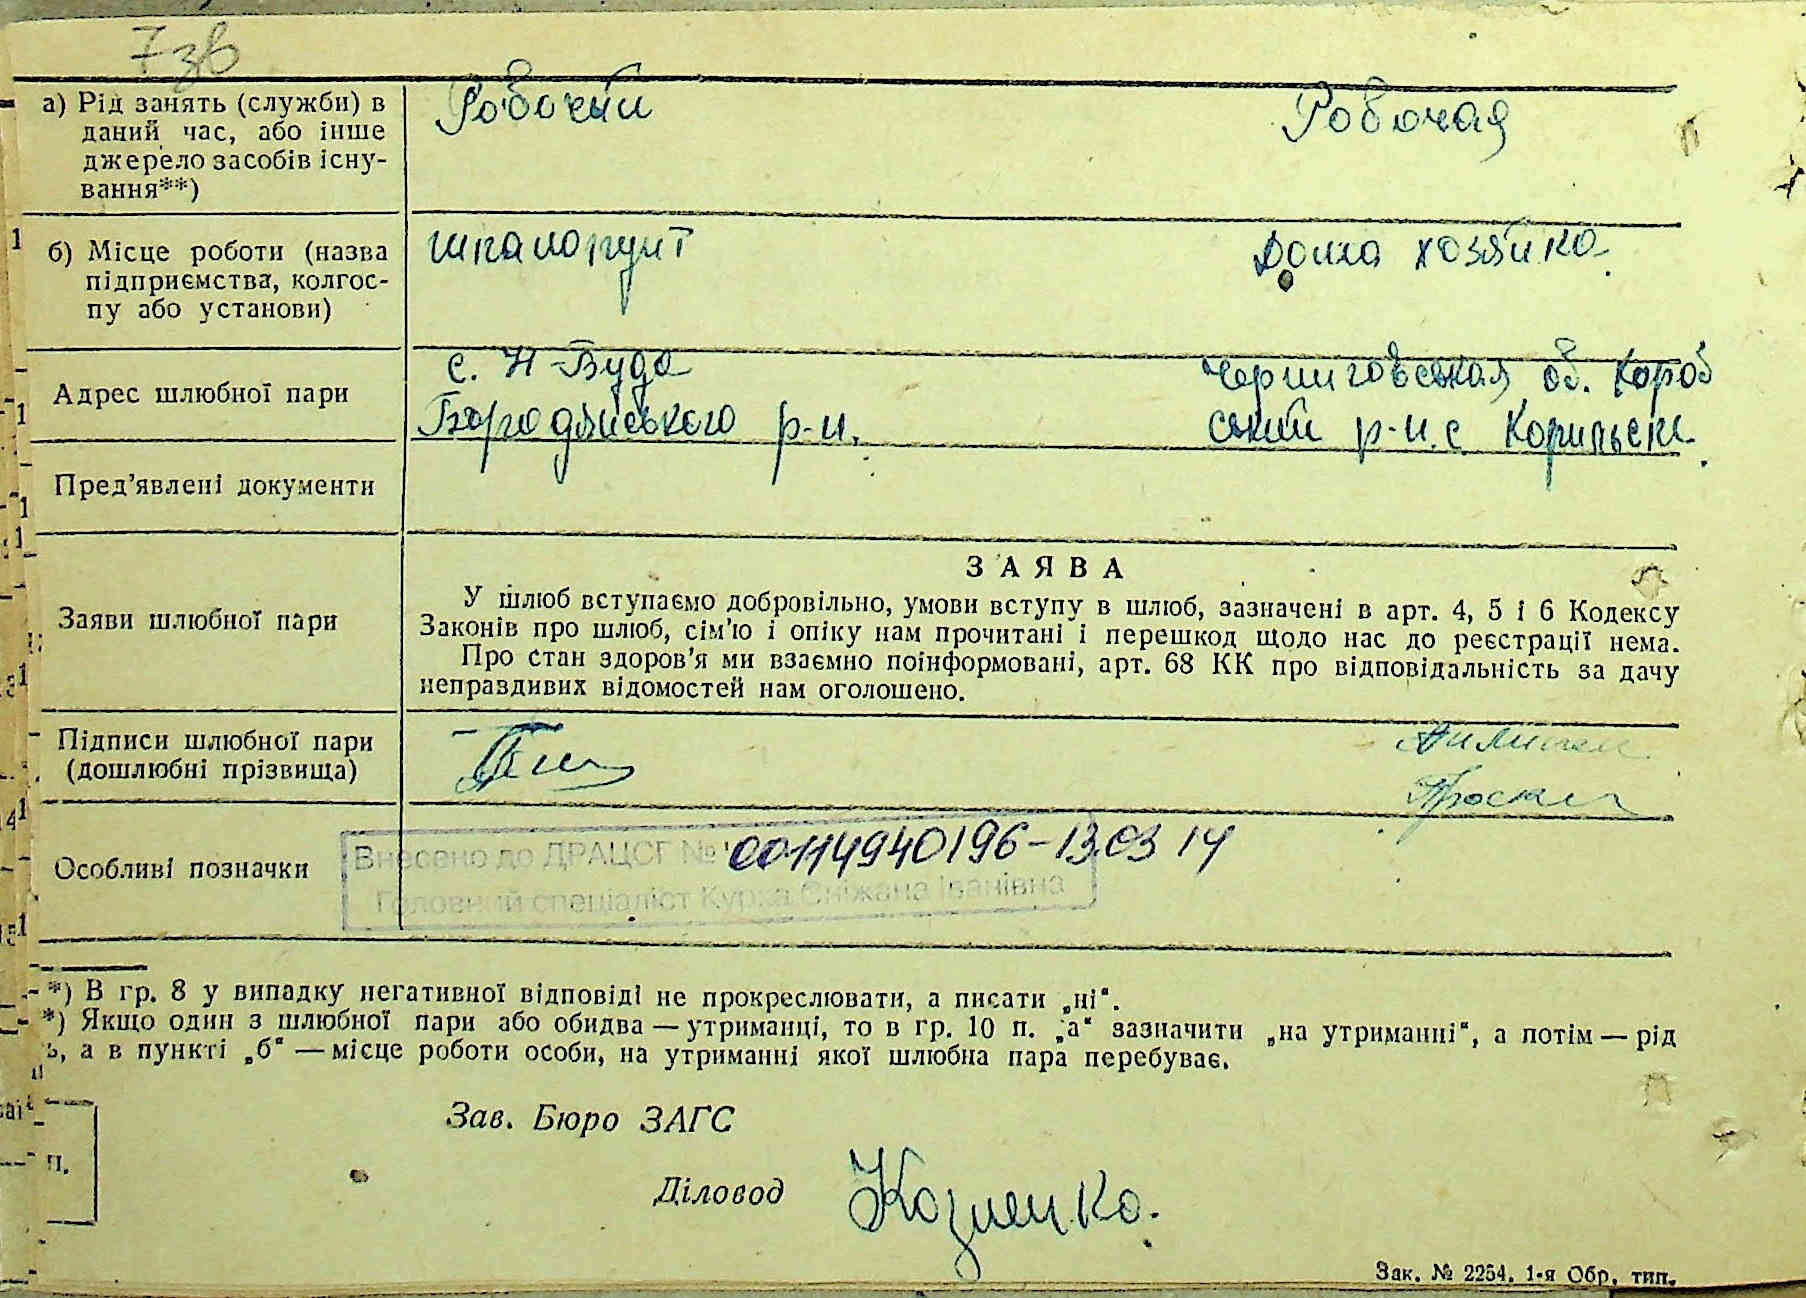 7зв
а) Рід занять (служби) в
даний час, або інше
джерело засобів існу-
вання**)
Робочий
Робочая
б) Місце роботи (назва
підприємства, колгос-
пу або установи)
шпалопункт
Дома хозяйка
Адрес шлюбної пари
с. Н-Буда
Бородянського р-н.
Черниговская об. Короб
ский р-н. с
Пред'явлені документи
Заяви шлюбної пари
ЗАЯВА
У шлюб вступаємо добровільно, умови вступу в шлюб, зазначені в арт. 4, 5 і 6 Кодексу
Законів про шлюб, сім'ю і опіку нам прочитані і перешкод щодо нас до реєстрації нема.
Про стан здоров'я ми взаємно поінформовані, арт. 68 КК про відповідальність за дачу
неправдивих відомостей нам оголошено.
Підписи шлюбної пари
(дошлюбні прізвища)
Особливі позначки
Внесено до ДРАЦСГ № 00114940196-13.03 14
Головний спеціаліст Курка Сніжана Іванівна
*) В гр. 8 у випадку негативної відповіді не прокреслювати, а писати „ні“.
*) Якщо один з шлюбної пари або обидва — утриманці, то в гр. 10 п. „а“ зазначити „на утриманні“, а потім — рід
ь, а в пункті „б“ — місце роботи особи, на утриманні якої шлюбна пара перебуває.
Зав. Бюро ЗАГС
п.
Діловод
Зак. № 2254. 1-я Обр. тип.